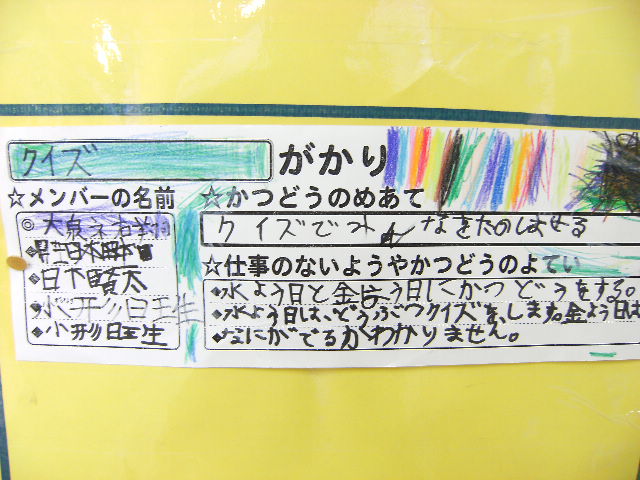 クイズ がかり
☆メンバーの名前
日下晴太
小形日生
小形日生
☆かつどうのめあて
クイズでみんなをたのしませる
☆仕事のないようやかつどうのよてい
水よう日と金よう日にかつどうをする。
水よう日は、どうぶつクイズを、します。金よう日は
なにがでるかわかりません。